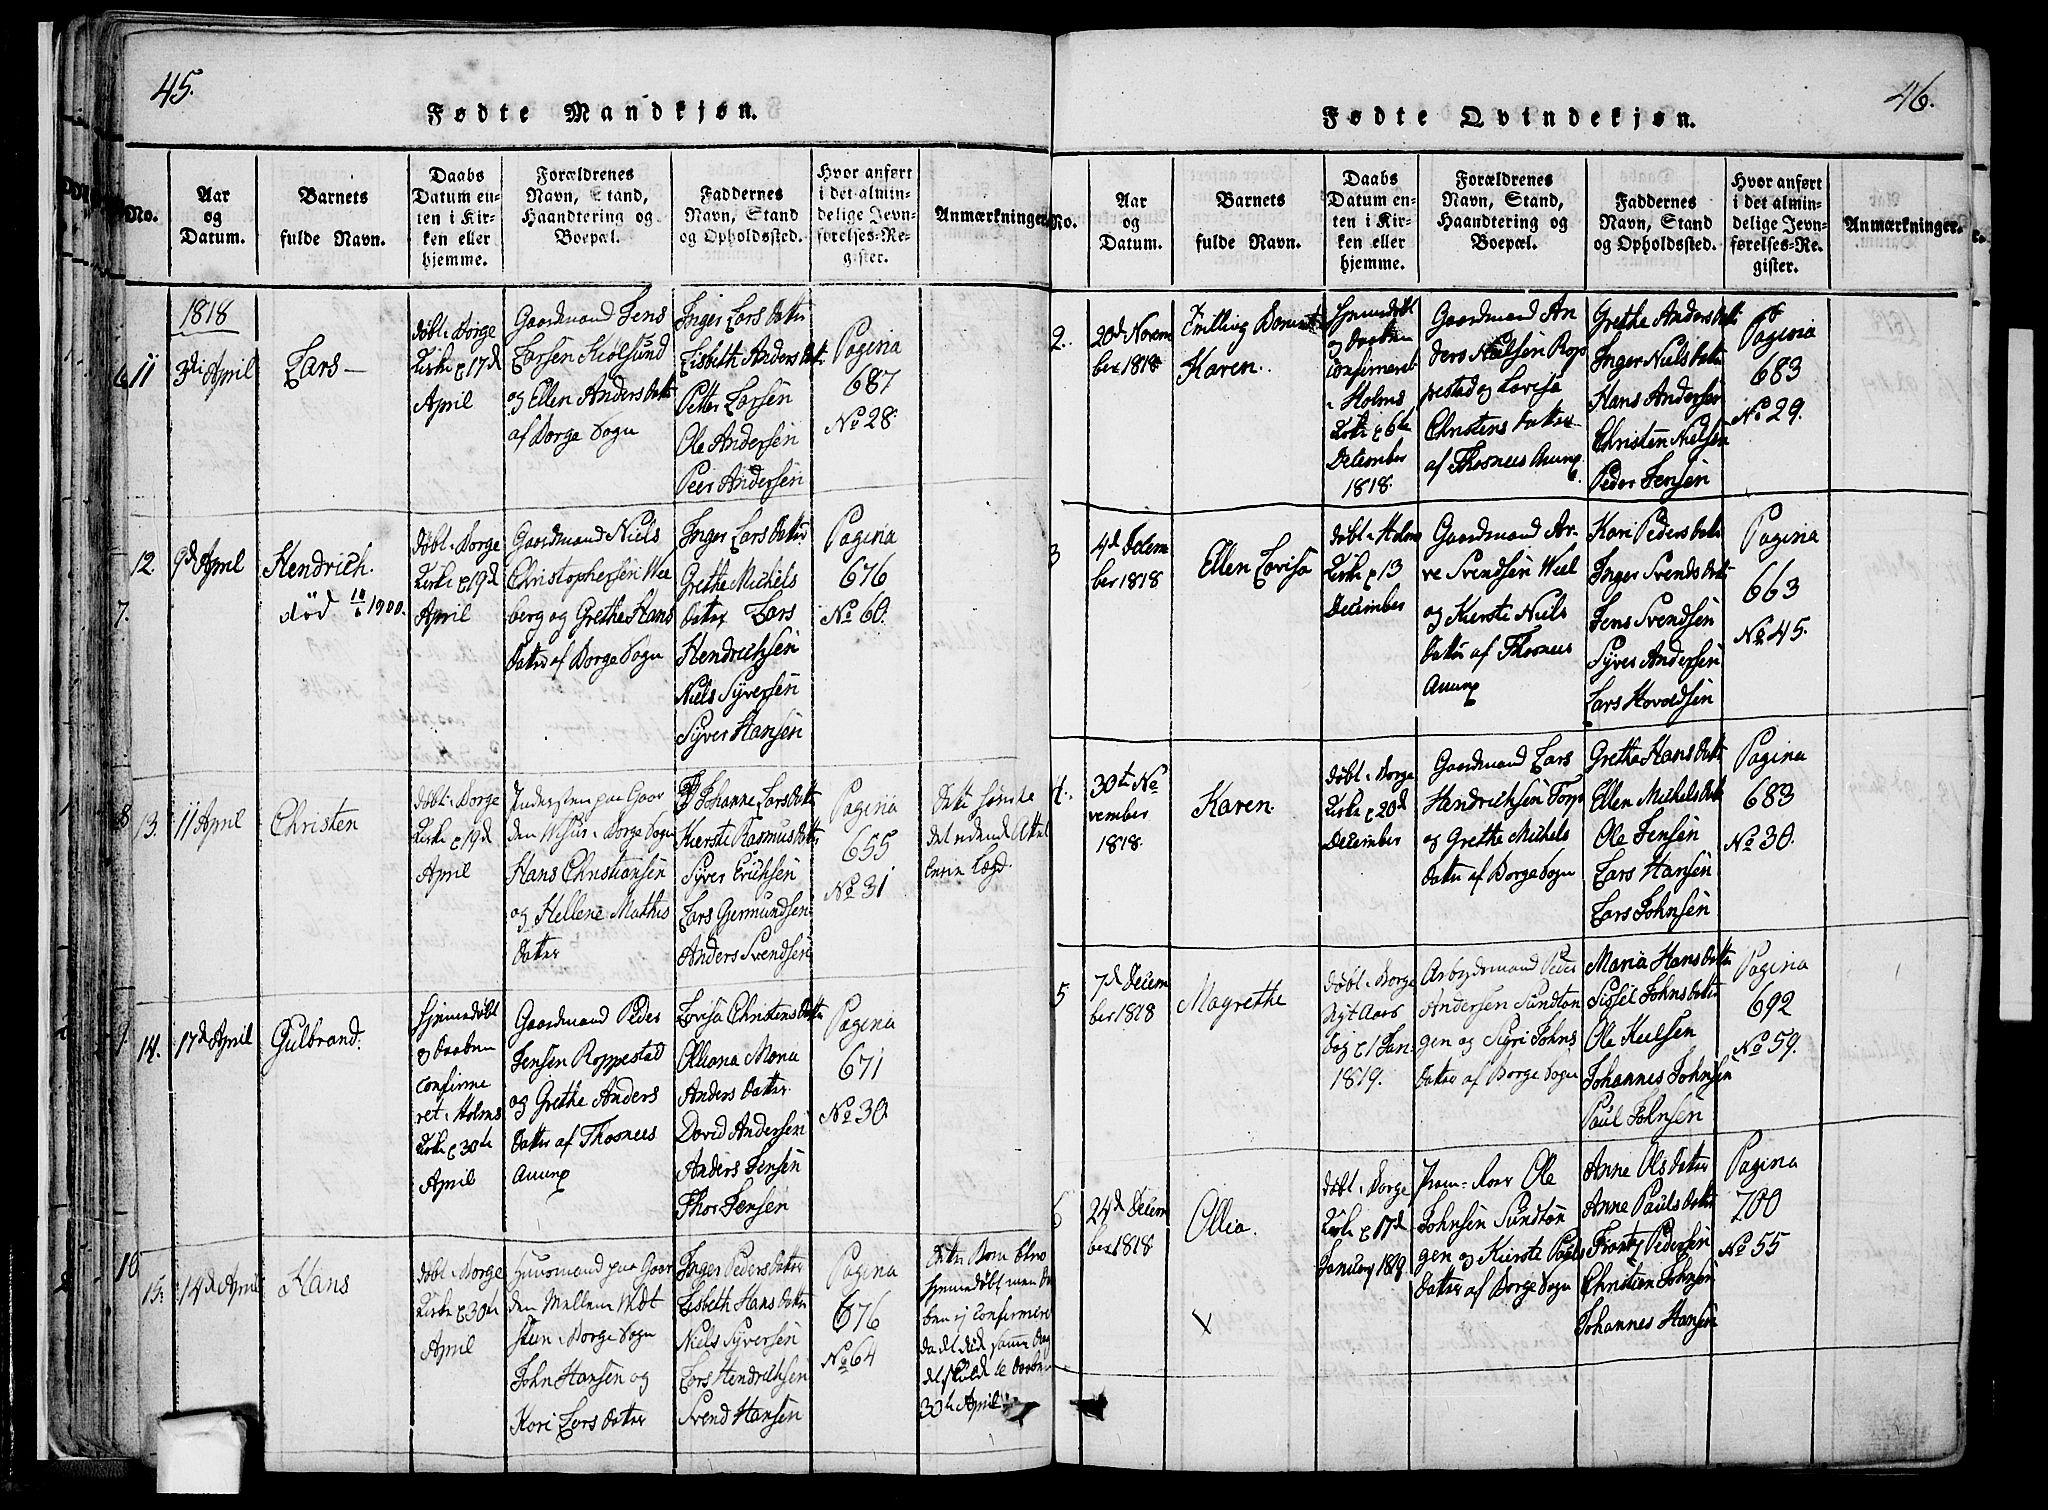 45.
Fødte Mandkjøn.
No.
Aar
og
Datum.
Barnets
fulde Navn.
Daabs
Datum en-
ten i Kir-
ken eller
hjemme.
Forældrenes
Navn, Stand,
Haandtering og
Boepæl.
Faddernes
Navn, Stand
og Opholdssted.
Hvor anført
i det almin-
delige Jevn-
førelses-Re-
gister.
Anmærkninger.
1818
11
3di April
Lars
døbt i Borge
Kirke d 17d
April
Gaardmand Jens
Larsen Kiolsund
og Ellen Anders datter
af Borge Sogn
Inger Lars datter
Lisbeth Anders datter
Petter Larsen
Ole Andersen
Peer Andersen
Pagina
687
No 28
12
7.
9d April
Hendrich.
død 10/6 1900.
døbt i Borge
Kirke d 19d
April
Gaardmand Niels
Christophersen Wee
berg og Grethe Hans
datter af Borge Sogn
Inger Lars datter
Grethe Michels
datter Lars
Hendrichsen
Niels Syversen
Syver Hansen
Pagina
676
No 60.
8
13.
11 April
Christen
døbt i Borge
Kirke d 19d
April
Inderster paa Gaar
den i Borge Sogn
Hans Christiansen
og Hellene Mathis
datter
Johanne Lars datter
Kierste Rasmus datter
Syver Erichsen
Lars Germundsen
Anders Svendsen
Pagina
655
No 31
9.
14.
17d April
Gulbrand.
Hjemmedøbt
og Daaben
confirme
ret i Holms
Kirke d 30te
April
Gaardmand Peder
Jensen Roppestad
og Grethe Anders
datter af Thosnees
Annex
Lovisa Christens datter
Olliana Mona
Anders datter
David Andersen
Anders Jensen
Thor Jensen
Pagina
671
No 30
10
15.
14d April
Hans
døbt i Borge
Kirke d 30te
April
Huusmand paa Gaar
den Mellem
i Borge Sogn
John Hansen og
Kari Lars datter
Inger Peders datter
Lisbeth Hans datter
Niels Syversen
Lars Hendrichsen
Svend Hansen
Pagina
676
No 64
Dette Barn blev
hjemmedøbt men Daa
ben ej confirmeret
da det døde samme Dag
det skulde til Daaben
30te April
46.
Fødte Qvindekjøn.
No.
Aar
og
Datum.
Barnets
fulde Navn.
Daabs
Datum en-
ten i Kir-
ken eller
hjemme.
Forældrenes
Navn, Stand,
Haandtering og
Boepæl.
Faddernes
Navn, Stand
og Opholdssted.
Hvor anført
i det almin-
delige Jevn-
førelses-Re-
gister.
Anmærkninger.
2.
20d Novem
ber 1818
Trilling Barnet
Karen.
Hjemmedøbt
og Daaben
confirmeret
i Holms
Kirke d 6te
December
1818.
Gaardmand An
ders Nielsen Rop
pestad og Lovisa
Christens datter
af Thosnees Annex
Grethe Anders datter
Inger Niels datter
Hans Andersen
Christen Nielsen
Peder Jensen
Pagina
683
No 29.
3
4d Decem
ber 1818
Ellen Lovisa
døbt i Holms
Kirke d 13
December
Gaardmand Ar
ve Svendsen Weel
og Kierste Niels
datter af Thosnees
Annex
Kari Peders datter
Inger Svends datter
Jens Svendsen
Syver Andersen
Lars Havoldsen
Pagina
663
No 45.
4.
30te No
vember
1818.
Karen.
døbt i Borge
Kirke d 20d
December
Gaardmand Lars
Hendrichsen Torp
og Grethe Michels
datter af Borge Sogn
Grethe Hans datter
Ellen Michels datter
Ole Jensen
Lars Hansen
Lars Johnsen
Pagina
683
No 30.
5
7d Decem
ber 1818
Magrethe
døbt i Borge
Nyt Aars
Dag d 1 Jan
1819.
Arbejdsmand Peder
Andersen Sundtan
gen og Sigri Johns
datter af Borge Sogn
Maria Hans datter
Sissel Johns datter
Ole Keilsen
Johannes Johnsen
Paul Johnsen
Pagina
692
No 59.
6
24d Decem
ber 1818
Ollia.
X
døbt i Borge
Kirke d 17d
Januarj 1819
Pram-Roer Ole
Johnsen Sundtan
gen og Kierste Pauls
datter af Borge Sogn
Anne Ols datter
Anne Pauls datter
Frantz Pedersen
Christian Johnsen
Johannes Hansen
Pagina
700
No 55